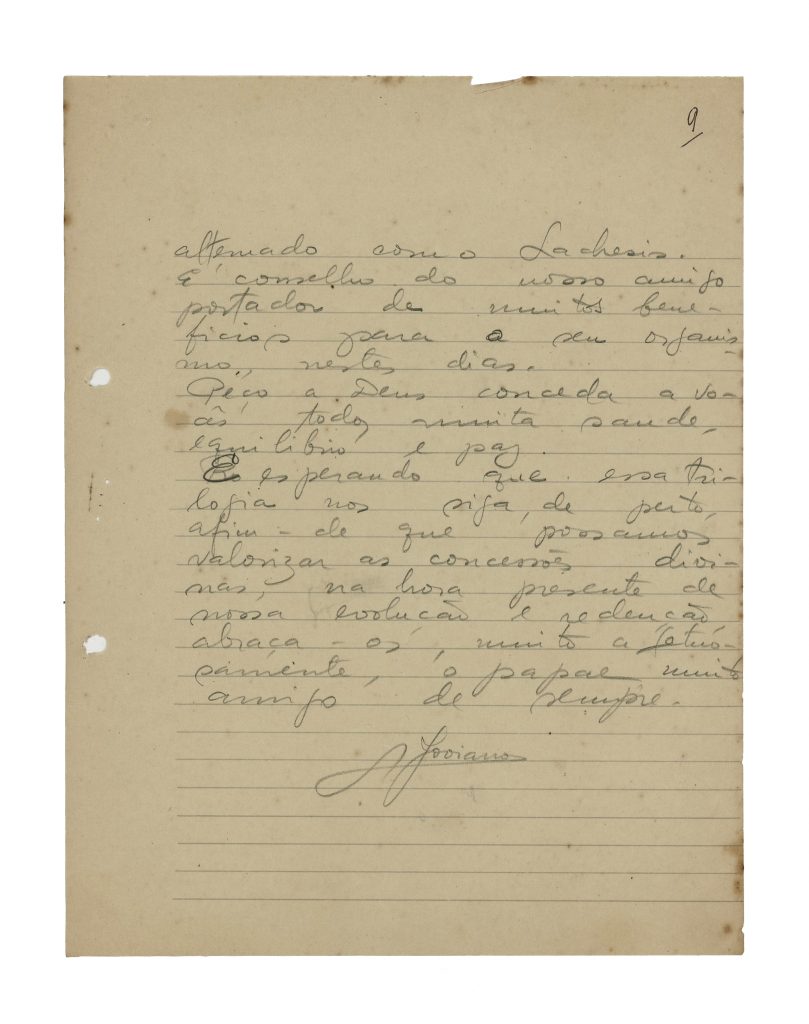 9
alternado com o Lachesis.
É conselho do nosso amigo
portador de muitos bene-
ficios para o seu organis-
mo, nestes dias.
Peço a Deus conceda a vo-
cês todos muita saude,
equilibrio e paz.
E esperando que essa tri-
logia nos siga, de perto,
afim-de que possamos
valorizar as concessões divi-
nas, na hora presente de
nossa evolução e redenção,
abraça-os, muito afetuo-
samente, o papae muito
amigo de sempre.